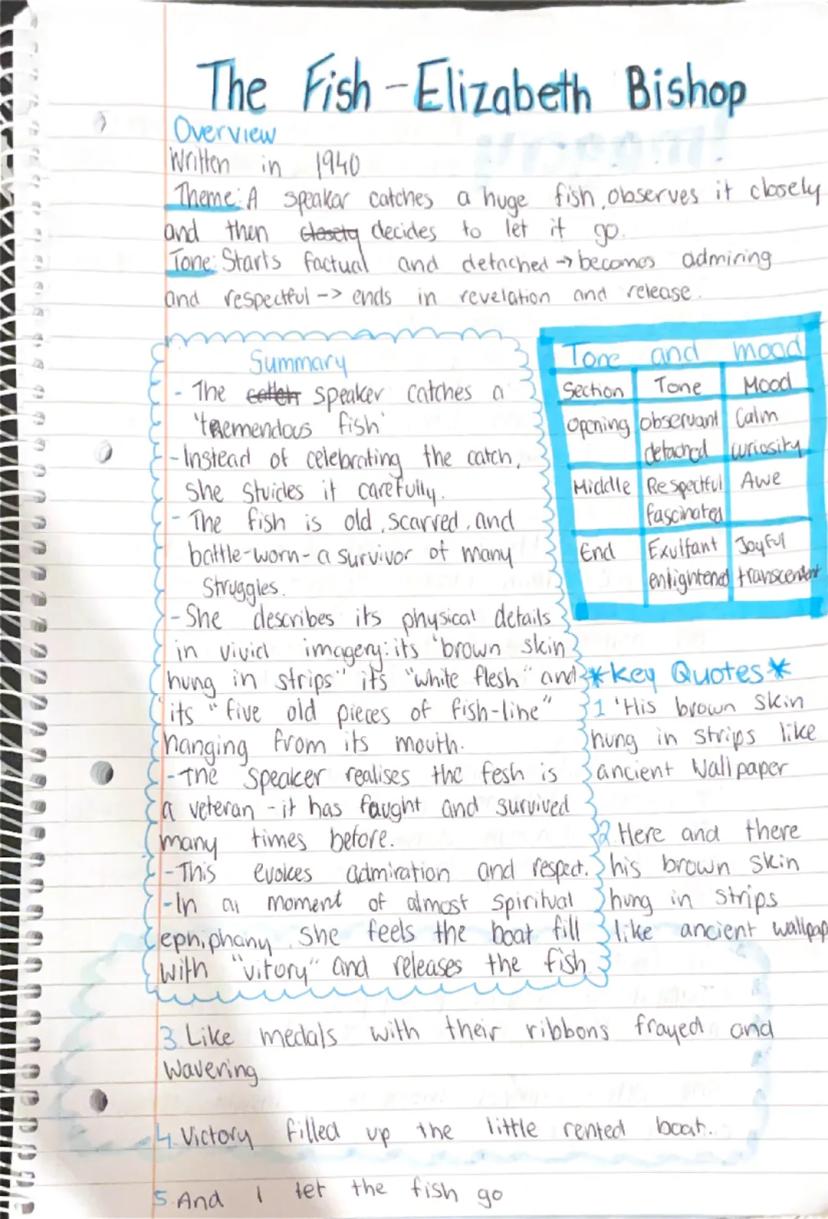 The Fish - Elizabeth Bishop
Overview
Written in 1940
Theme: A speaker catches a huge fish, observes it closely
and then closely decides to let it go.
Tone: Starts factual and detached → becomes admiring
and respectful -> ends in revelation and release.
Summary
- The catch speaker catches a
'tremendous fish'
- Instead of celebrating the catch,
she stuides it carefully.
- The fish is old, scarred, and
battle-worn - a survivor of many
struggles.
- She describes its physical details
in vivid imagery: its "brown skin
hung in strips" its "white flesh" and
its "five old pieces of fish-line"
hanging from its mouth.
- The speaker realises the fesh is
a veteran - it has faught and survived
many times before.
- This evokes admiration and respect.
- In a moment of almost spiritual
ephiphany, she feels the boat fill
with "vitory" and releases the fish
Tone and mood
Section Tone Mood
Opening observant detached Calm curiosity
Middle Respectful fascinated Awe
End Exultant enlightened Joyful transcendent
*Key Quotes*
1 'His brown skin
hung in strips like
ancient wallpaper
2 Here and there
his brown skin
hung in strips
like ancient wallpap
3 Like medals with their ribbons frayed and
wavering
4. Victory filled up the little rented boat.
5 And I let the fish go